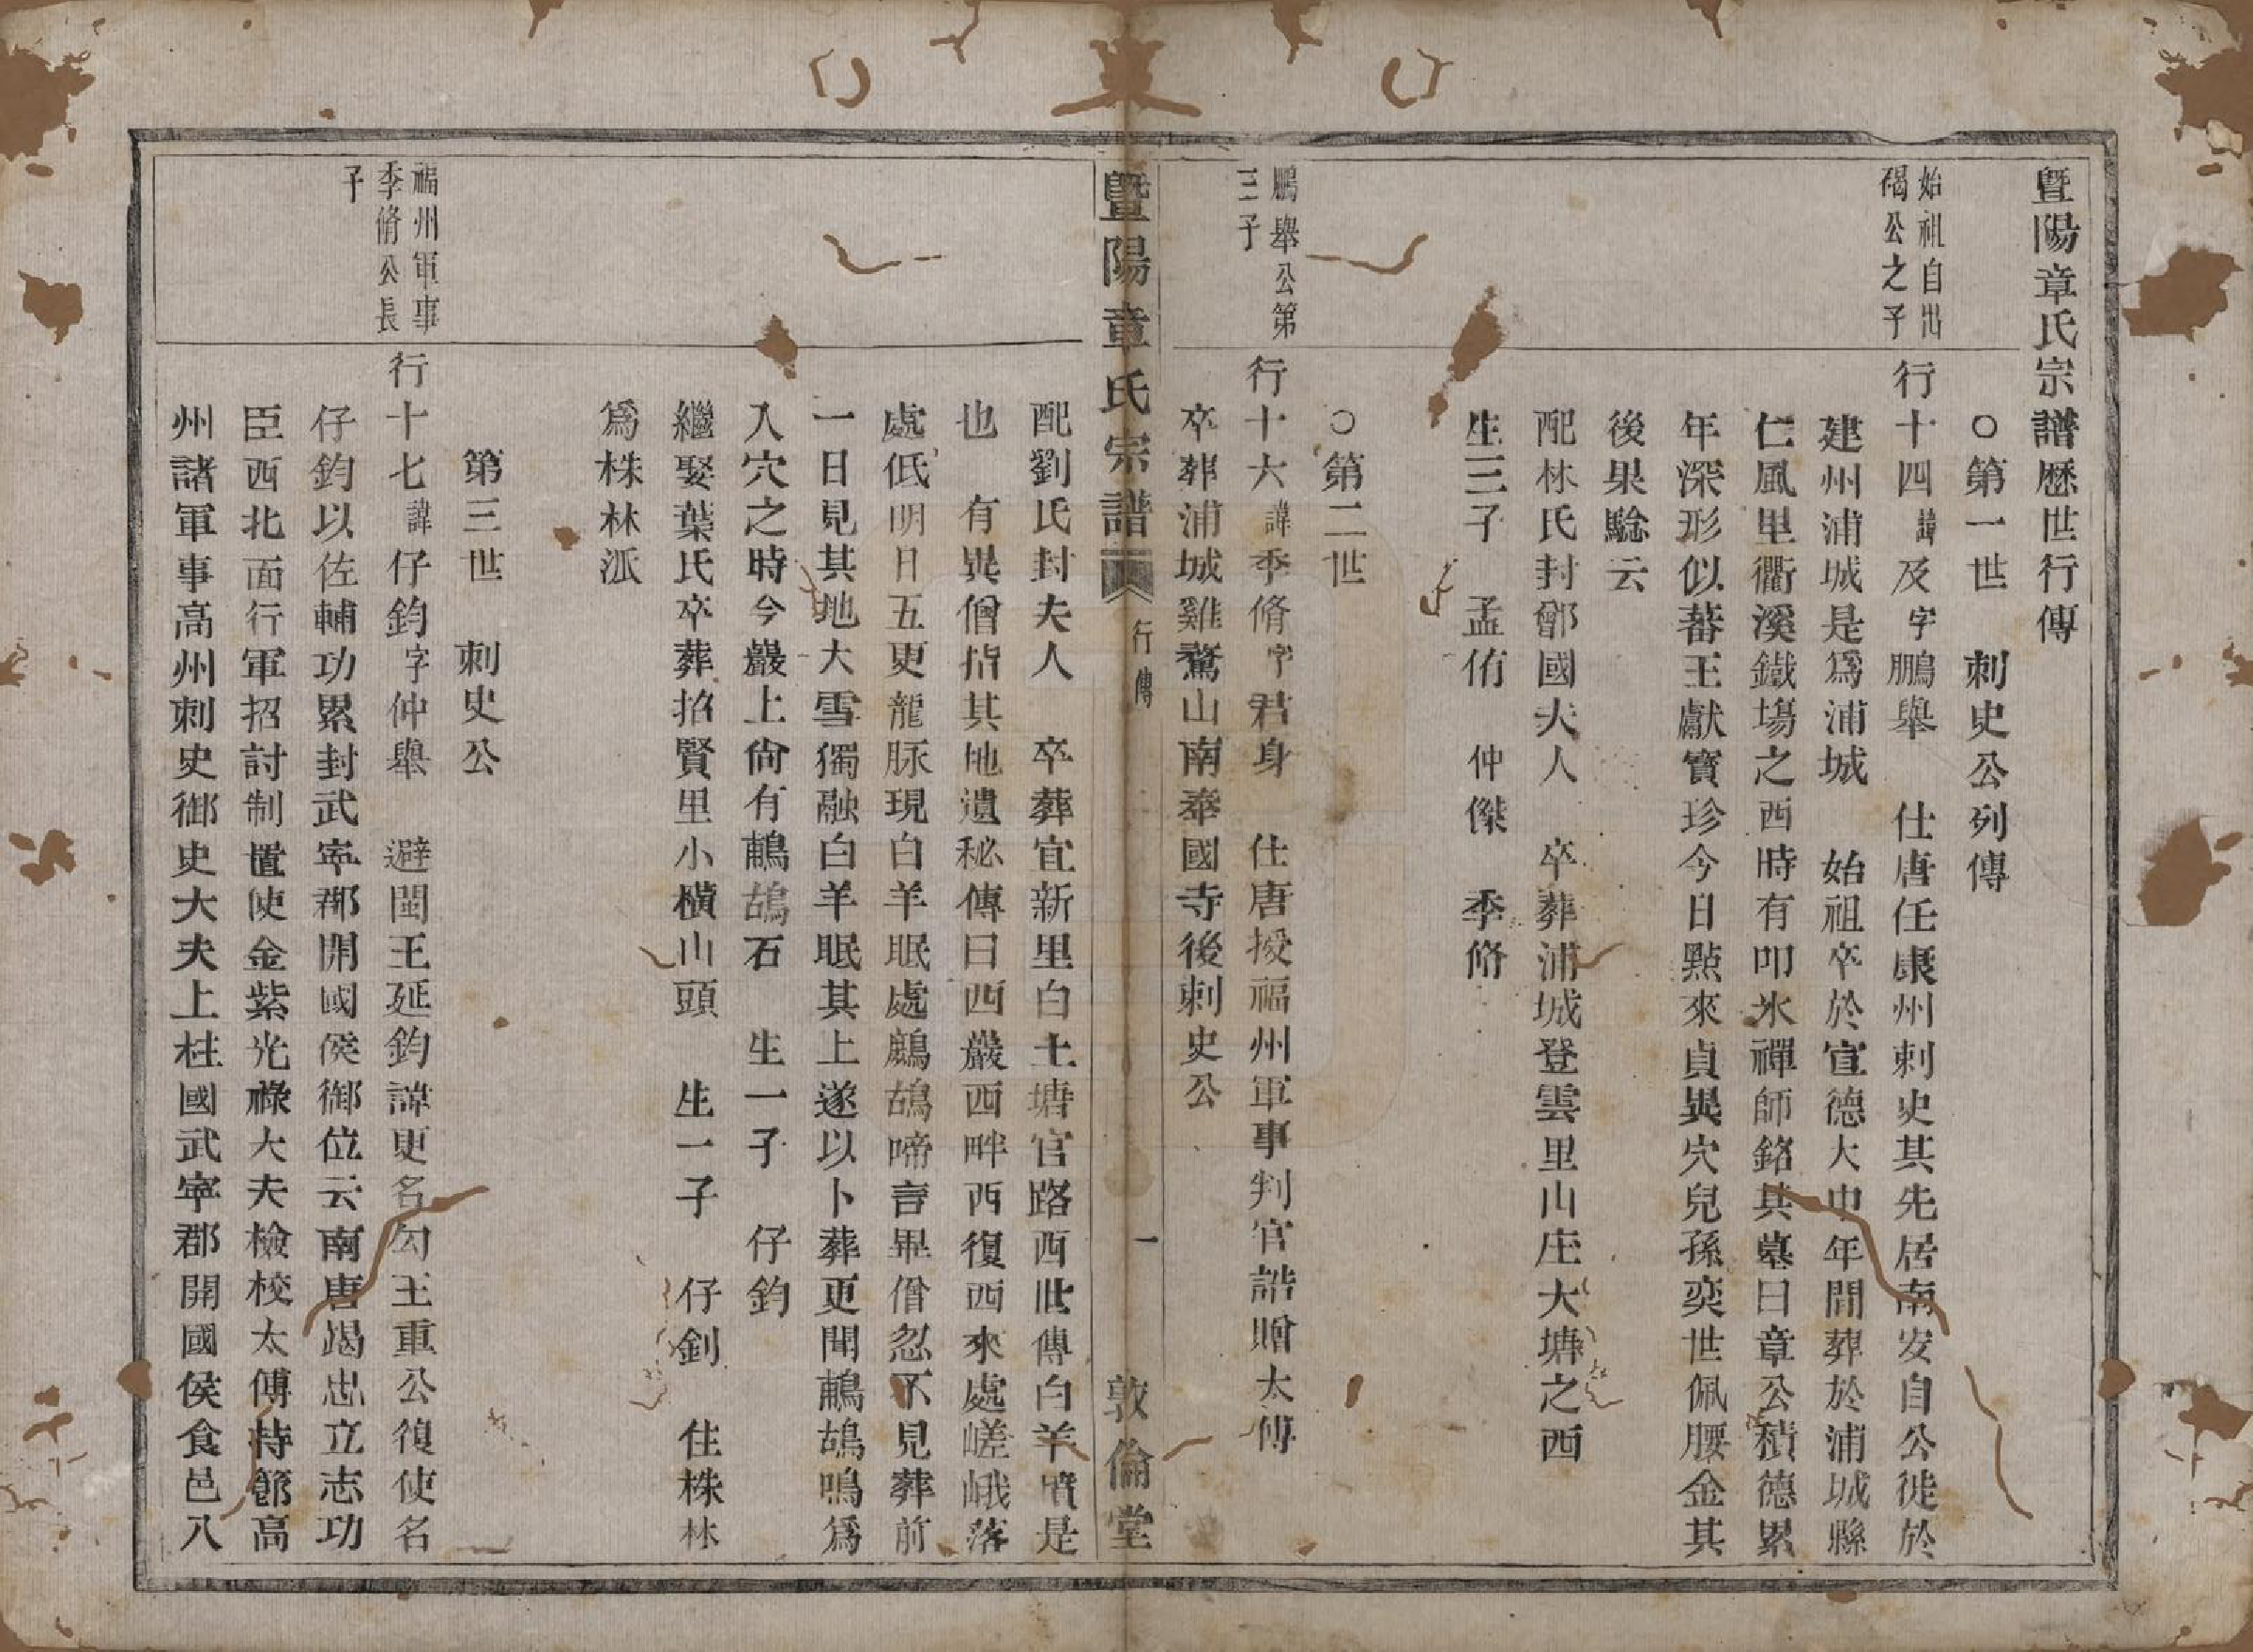 暨陽章氏宗譜歷世行傳
○第一世　刺史公列傳
始祖自出
碣公之子
行十四諱及字鵬舉　仕唐任康州刺史其先居南安自公徙於
建州浦城是爲浦城　始祖卒於宣德大中年間葬於浦城縣
仁風里衢溪鐵塲之西時有叩氷禪師銘其墓曰章公積德累
年深形似蕃王獻寳珍今日點來貞異穴兒孫奕世佩腰金其
後果騐云
配林氏封鄮國夫人　卒葬浦城登雲里山庄大塘之西
生三子　孟侑　仲傑　季脩
○第二世
鵬舉公第
三子
行十六諱季脩字君身　仕唐授福州軍事判官誥贈太傅
卒葬浦城雞鶩山南奉國寺後刺史公
暨陽章氏宗譜　行傳　一　敦倫堂
配劉氏封夫人　卒葬宜新里白土塘官路西世傳白羊墳是
也　有異僧指其地遺秘傳曰西巖西畔西復西來處嵯峨落
處低明日五更龍脉現白羊眠處鷓鴣啼言畢僧忽不見葬前
一日見其地大雪獨融白羊眠其上遂以卜葬更聞鷓鴣鳴爲
入穴之時今巖上尙有鷓鴣石　生一子　仔鈞
繼娶葉氏卒葬招賢里小橫山頭　生一子　仔釗　住株林
爲株林派
第三世　刺史公
福州軍事
季脩公長
子
行十七諱仔鈞字仲舉　避閩王延鈞諱更名勾王重公復使名
仔鈞以佐輔功累封武寧郡開國侯御位云南唐竭忠立志功
臣西北面行軍招討制置使金紫光祿大夫檢校太傅持節高
州諸軍事高州刺史御史大夫上柱國武寧郡開國侯食邑八